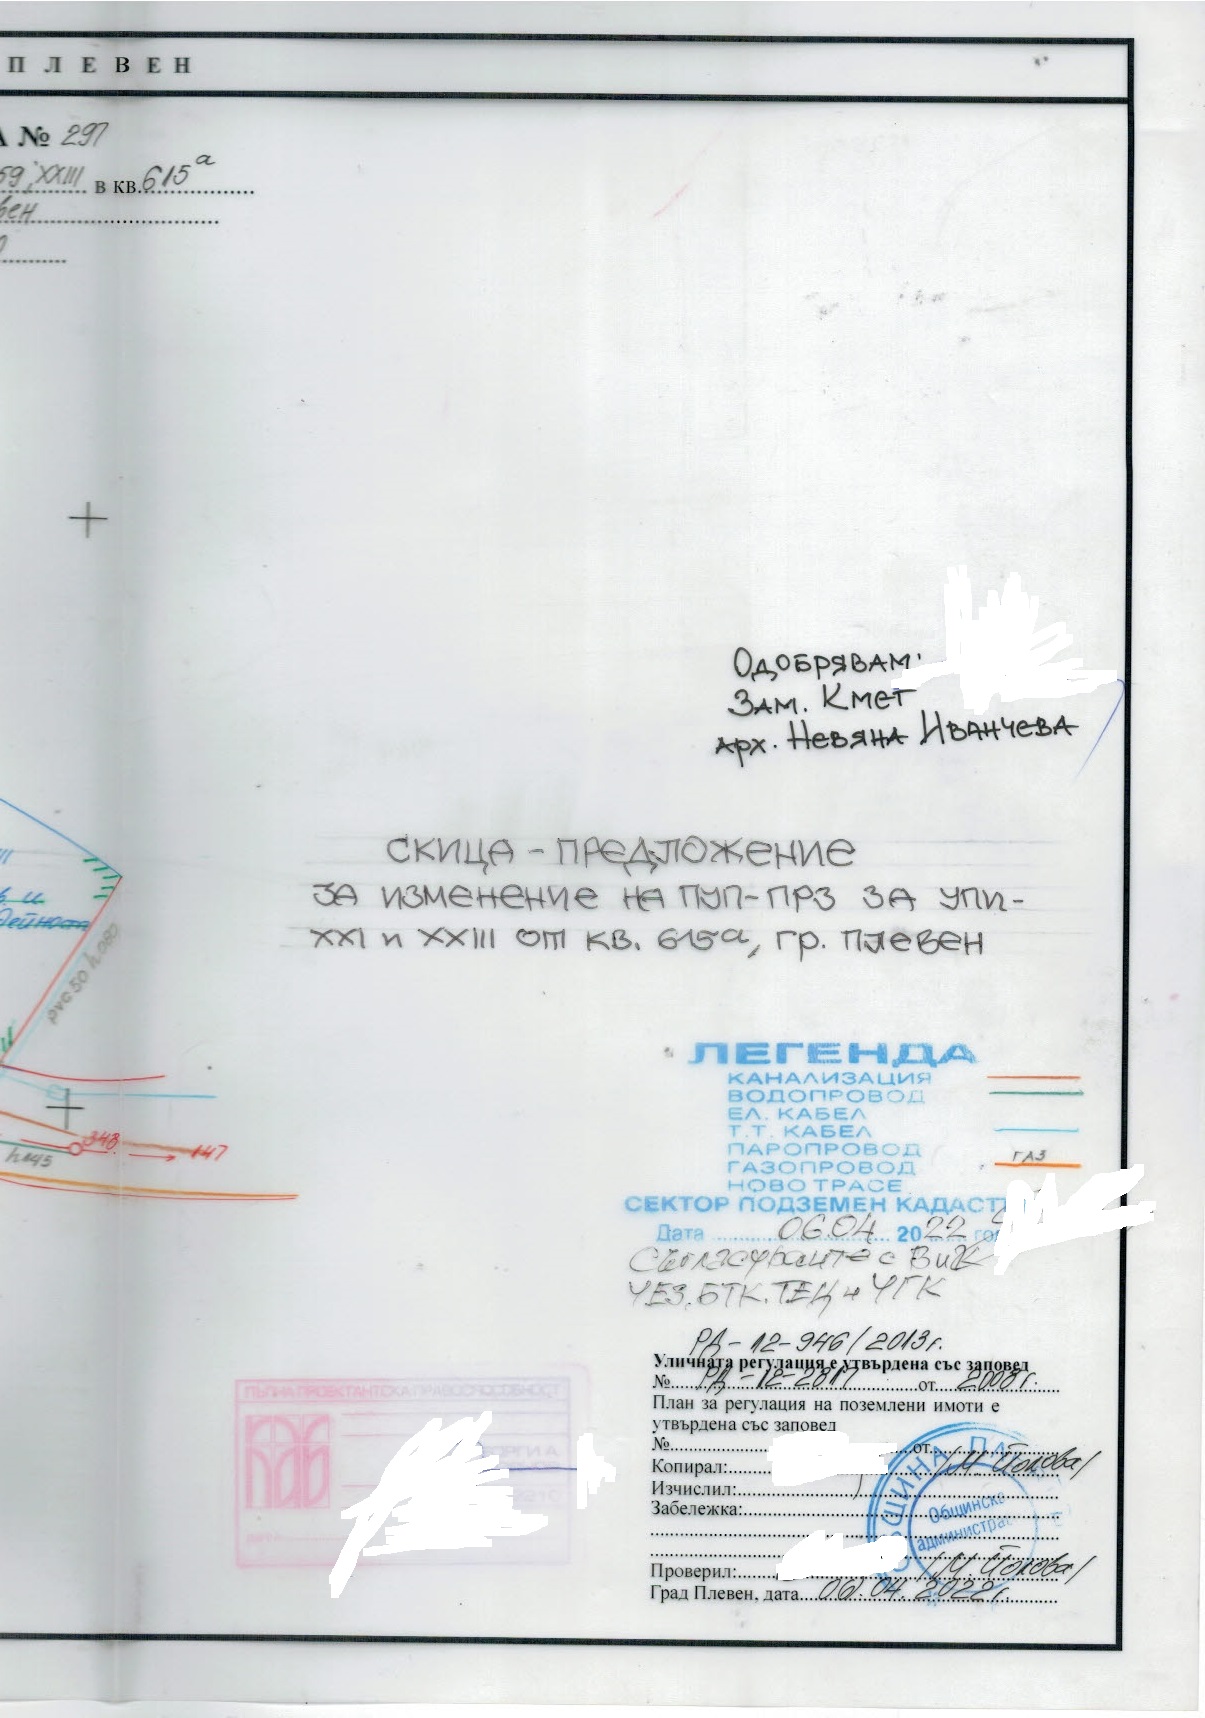 ПЛЕВЕН
А № 297
59, XXIII в кв. 615а
вен
Одобрявам:
Зам. Кмет
арх. Невяна Иванчева
СКИЦА - ПРЕДЛОЖЕНИЕ
ЗА ИЗМЕНЕНИЕ НА ПУП-ПРЗ ЗА УПИ-
XXI и XXIII ОТ КВ. 615а, гр. ПЛЕВЕН
pvc.50 h.080
348
147
h145
ЛЕГЕНДА
КАНАЛИЗАЦИЯ
ВОДОПРОВОД
ЕЛ. КАБЕЛ
Т.Т. КАБЕЛ
ПАРОПРОВОД
ГАЗ
ГАЗОПРОВОД
НОВО ТРАСЕ
СЕКТОР ПОДЗЕМЕН КАДАСТ
Дата 06.04 2022 го
Съгласувайте с ВиК
ЧЕЗ. БТК. ТЕЦ и ЧГК
РД-12-946/2013г.
Уличната регулация е утвърдена със заповед
№ РД-12-2817 от 2008г.
План за регулация на поземлени имоти е
утвърдена със заповед
№ от
Копирал: /М. Йолова/
Изчислил:
Забележка:
Проверил: /М. Йолова/
Град Плевен, дата 06.04.2022г.
ОБЩИНА ПЛ
Общинска
администрац
ПЪЛНА ПРОЕКТАНТСКА ПРАВОСПОСОБНОСТ